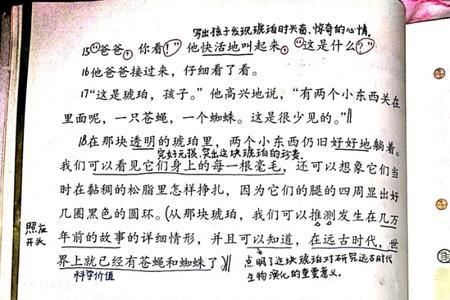 写出孩子发现琥珀时兴奋、惊奇的心情。
15“爸爸,你看!”他快活地叫起来,“这是什么?”
16他爸爸接过来,仔细看了看。
17“这是琥珀,孩子。”他高兴地说,“有两个小东西关在
里面呢,一只苍蝇,一个蜘蛛。这是很少见的。”
18在那块透明的琥珀里,两个小东西仍旧好好地躺着。
完好无损,突出这块琥珀的珍贵。
我们可以看见它们身上的每一根毫毛,还可以想象它们当
时在黏稠的松脂里怎样挣扎,因为它们的腿的四周显出好
几圈黑色的圆环。(从那块琥珀,我们可以推测发生在几万
照应
开头
年前的故事的详细情形,并且可以知道,在远古时代,世
界上就已经有苍蝇和蜘蛛了。
点明了这块琥珀对研究远古时代
生物演化的重要意义。
科学价值